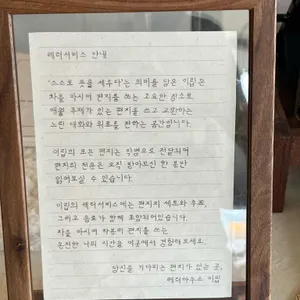 레터서비스 안내
'스스로 뜻을 세우다'는 의미를 담은 이립은
차를 마시며 편지를 쓰는 고요한 장소로
매월 주제가 있는 편지를 쓰고 교환하는
느린 대화와 위로를 전하는 공간입니다.
이립의 모든 편지는 익명으로 전달되며
편지의 전문은 오직 받아보신 한 분만
읽어보실 수 있습니다.
이립의 레터서비스에는 편지지 세트와 우표
그리고 음료가 함께 포함되어있습니다.
차를 마시며 차분히 편지를 쓰는
온전한 나의 시간을 이곳에서 경험해보세요.
당신을 기다리는 편지가 있는 곳,
레터하우스 이립